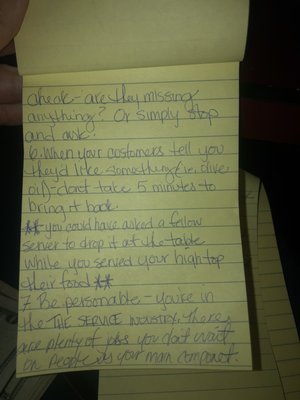 check - are they missing
anything? Or simply stop
and ask.
6. When your customers tell you
they'd like something i.e. olive
oil - don't take 5 minutes to
bring it back.
** you could have asked a fellow
server to drop it at the table
while you served your high top
their food **
7 Be personable - you're in
the THE SERVICE INDUSTRY. There
are plenty of jobs you don't wait
on people as your main component.